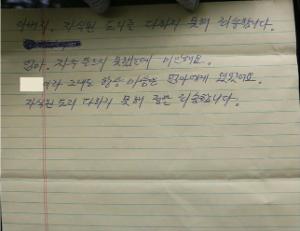 아버지, 자식된 도리를 다하지 못해 죄송합니다.
엄마. 자주 못해서 미안해요.
라 그래도 항상 마음만 엄마에게 있었어요.
자식된 도리 다하지 못해 정말 죄송합니다.